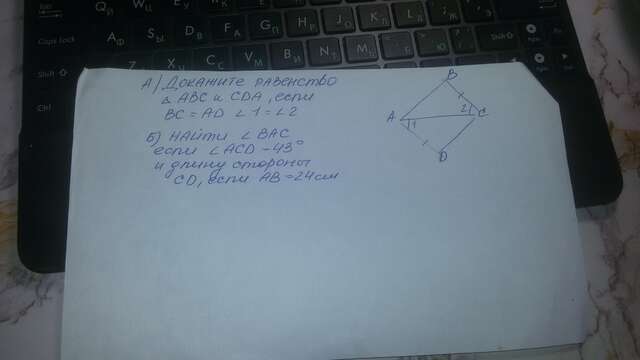 Caps Lock
Shift
Ctrl
А) Докажите равенство
△ ABC и CDA, если
BC = AD ∠1 = ∠2
Б) Найти ∠BAC
если ∠ACD - 43°
и длину стороны
CD, если AB = 24 см
B
A
1
2
C
D